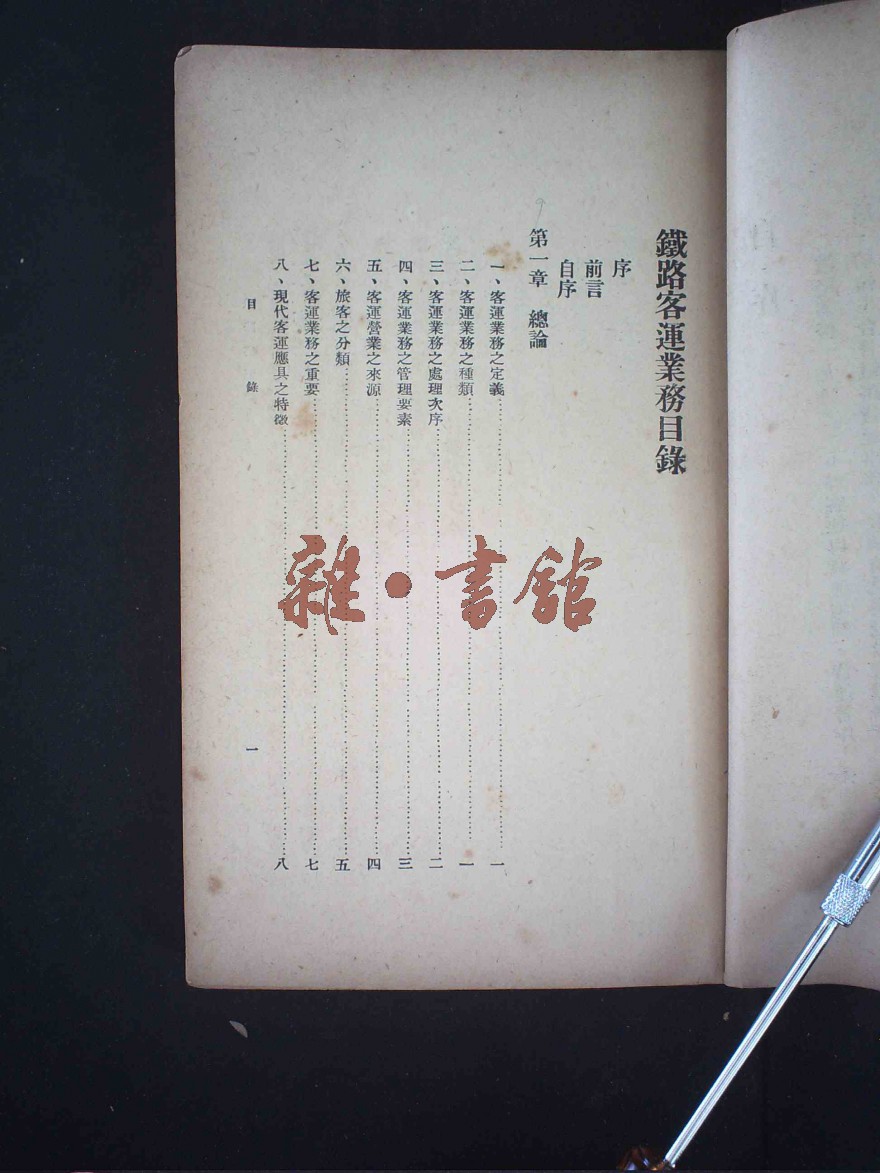 鐵路客運業務目錄
序
前言
自序
第一章 總論
一、客運業務之定義……一
二、客運業務之種類……一
三、客運業務之處理次序……二
四、客運業務之管理要素……三
五、客運營業之來源……四
六、旅客之分類……五
七、客運業務之重要……七
八、現代客運應具之特徵……八
目錄 一
雜·書館